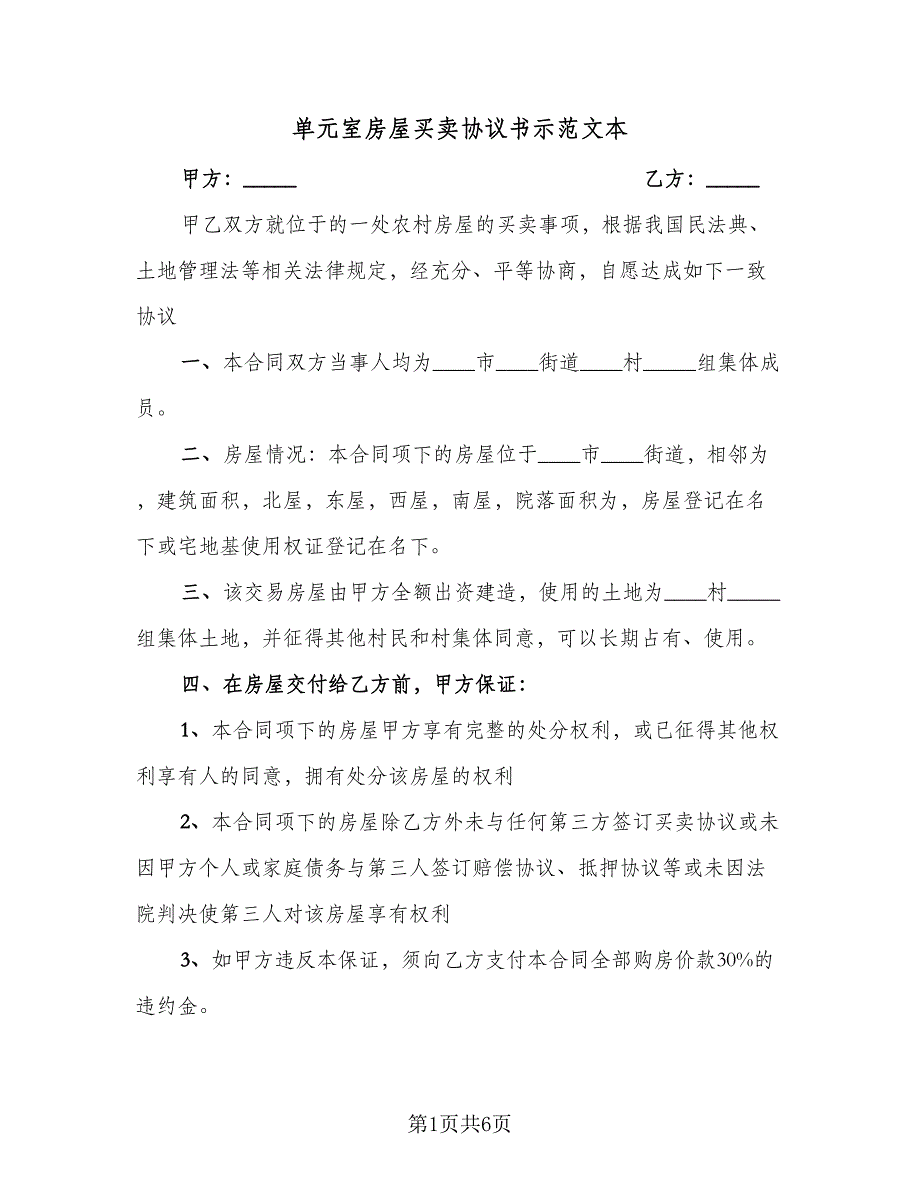 单元室房屋买卖协议书示范文本
甲方：_____ 乙方：_____
甲乙双方就位于的一处农村房屋的买卖事项，根据我国民法典、
土地管理法等相关法律规定，经充分、平等协商，自愿达成如下一致
协议
一、本合同双方当事人均为____市____街道____村_____组集体成
员。
二、房屋情况：本合同项下的房屋位于____市____街道，相邻为
，建筑面积，北屋，东屋，西屋，南屋，院落面积为，房屋登记在名
下或宅地基使用权证登记在名下。
三、该交易房屋由甲方全额出资建造，使用的土地为____村_____
组集体土地，并征得其他村民和村集体同意，可以长期占有、使用。
四、在房屋交付给乙方前，甲方保证：
1、本合同项下的房屋甲方享有完整的处分权利，或已征得其他权
利享有人的同意，拥有处分该房屋的权利
2、本合同项下的房屋除乙方外未与任何第三方签订买卖协议或未
因甲方个人或家庭债务与第三人签订赔偿协议、抵押协议等或未因法
院判决使第三人对该房屋享有权利
3、如甲方违反本保证，须向乙方支付本合同全部购房价款30%的
违约金。
第1页共6页